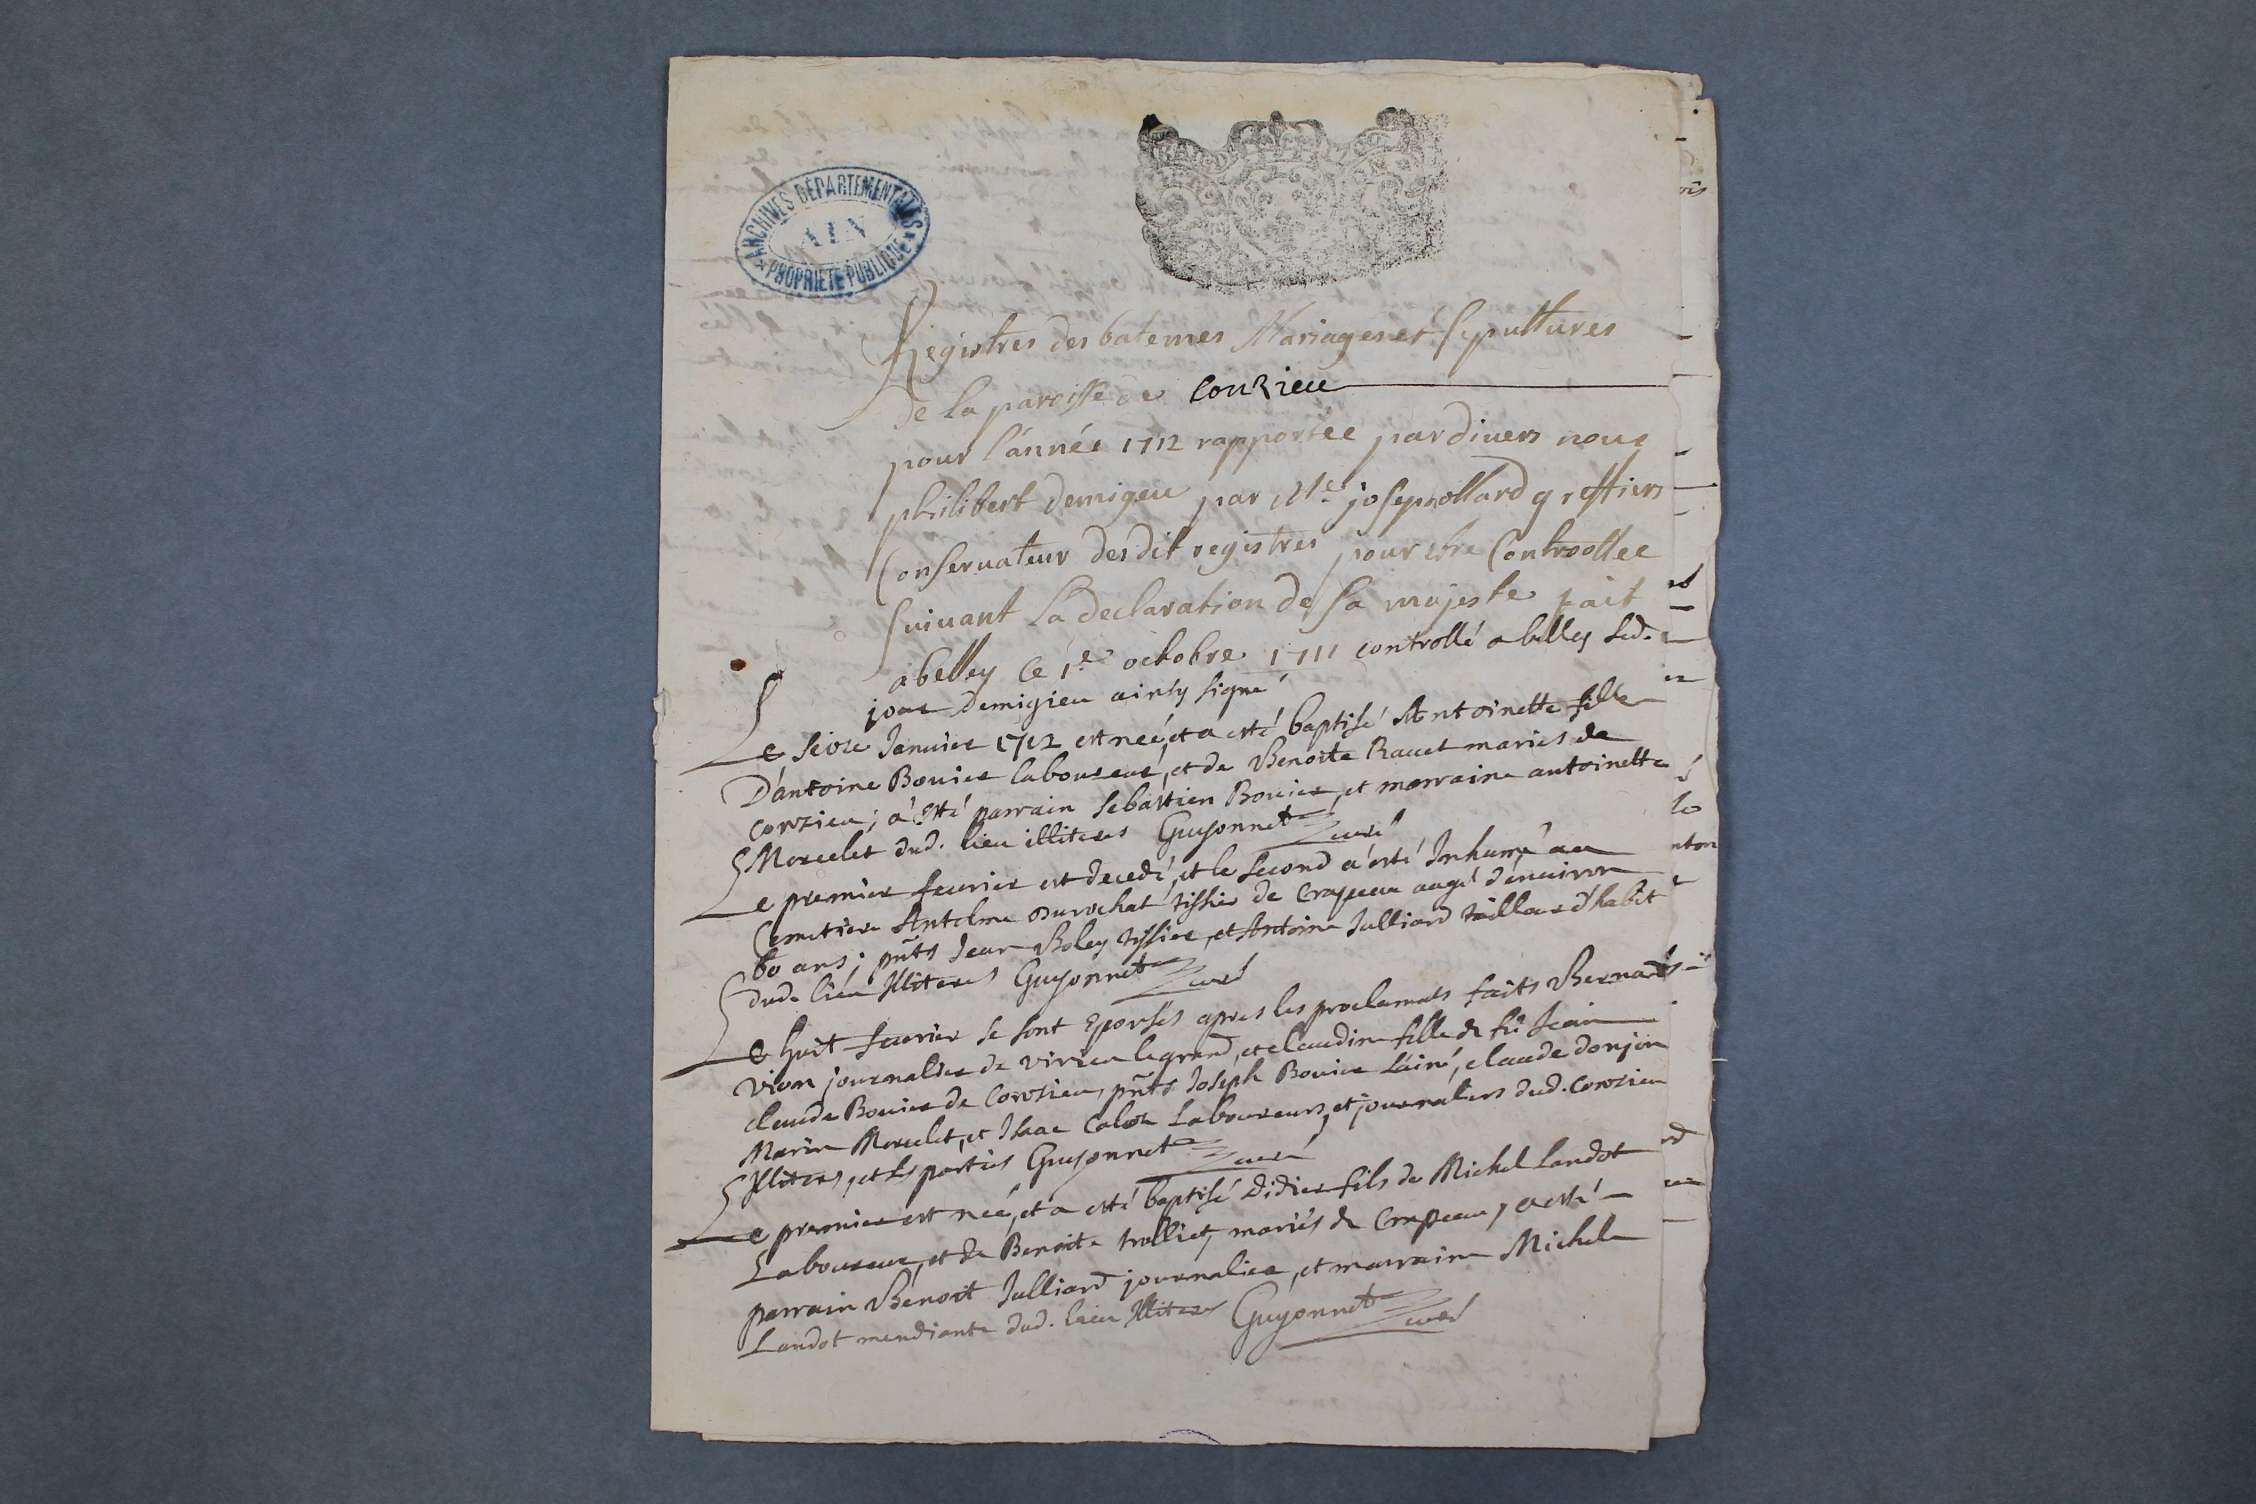 ARCHIVES DÉPARTEMENTALES
AIN
PROPRIÉTÉ PUBLIQUE
Registres des batemes Mariages et Sepultures
de la paroisse de Conzieu
pour l'année 1712 rapportée pardivers nous
philibert Demigieu par Me joseph ollard greffiers
Conservateur desdit registres pour etre Controollee
Suivant La declaration de Sa majeste fait
a belley ce 1er octobre 1711 controllé a belley led.
jour Demigieu ainsy signé
Le seize Janvier 1712 est neé, et a esté baptisé Antoinette fille
D'antoine Bovier laboureur, et de Benoite Ravet mariés de
Conzieu; a esté parrain Sebastien Bovier, et marraine antoinette
Morcelet dud. lieu illiteres Guyonnet curé
Le premier fevrier est decedé, et le second a esté Inhumé au
Cemetiere Antelme Durochat tissier de Crapeau aagé d'environ
60 ans; pnts Jean Boley tissier, et Antoine Julliard tailleur d'habit
dud. lieu Illiteres Guyonnet curé
Le huit fevrier se sont Epousés apres les proclamats faits Bernard
Vion journalier de Virieu le grand, et claudine fille de fû Jean
claude Bovier de Conzieu, pnts Joseph Bovier l'ainé, claude donjon
Marin Morcelet, et Isaac Calon Laboureurs, et journaliers dud. Conzieu
Illiteres, et les parties Guyonnet curé
Le premier est neé, et a esté baptisé Didier fils de Michel Landot
Laboureur, et de Benoite trolliet, mariés de Crapeau, a esté
parrain Benoit Julliard journalier, et marraine Michele
Landot mendiante dud. lieu Illiteres Guyonnet curé